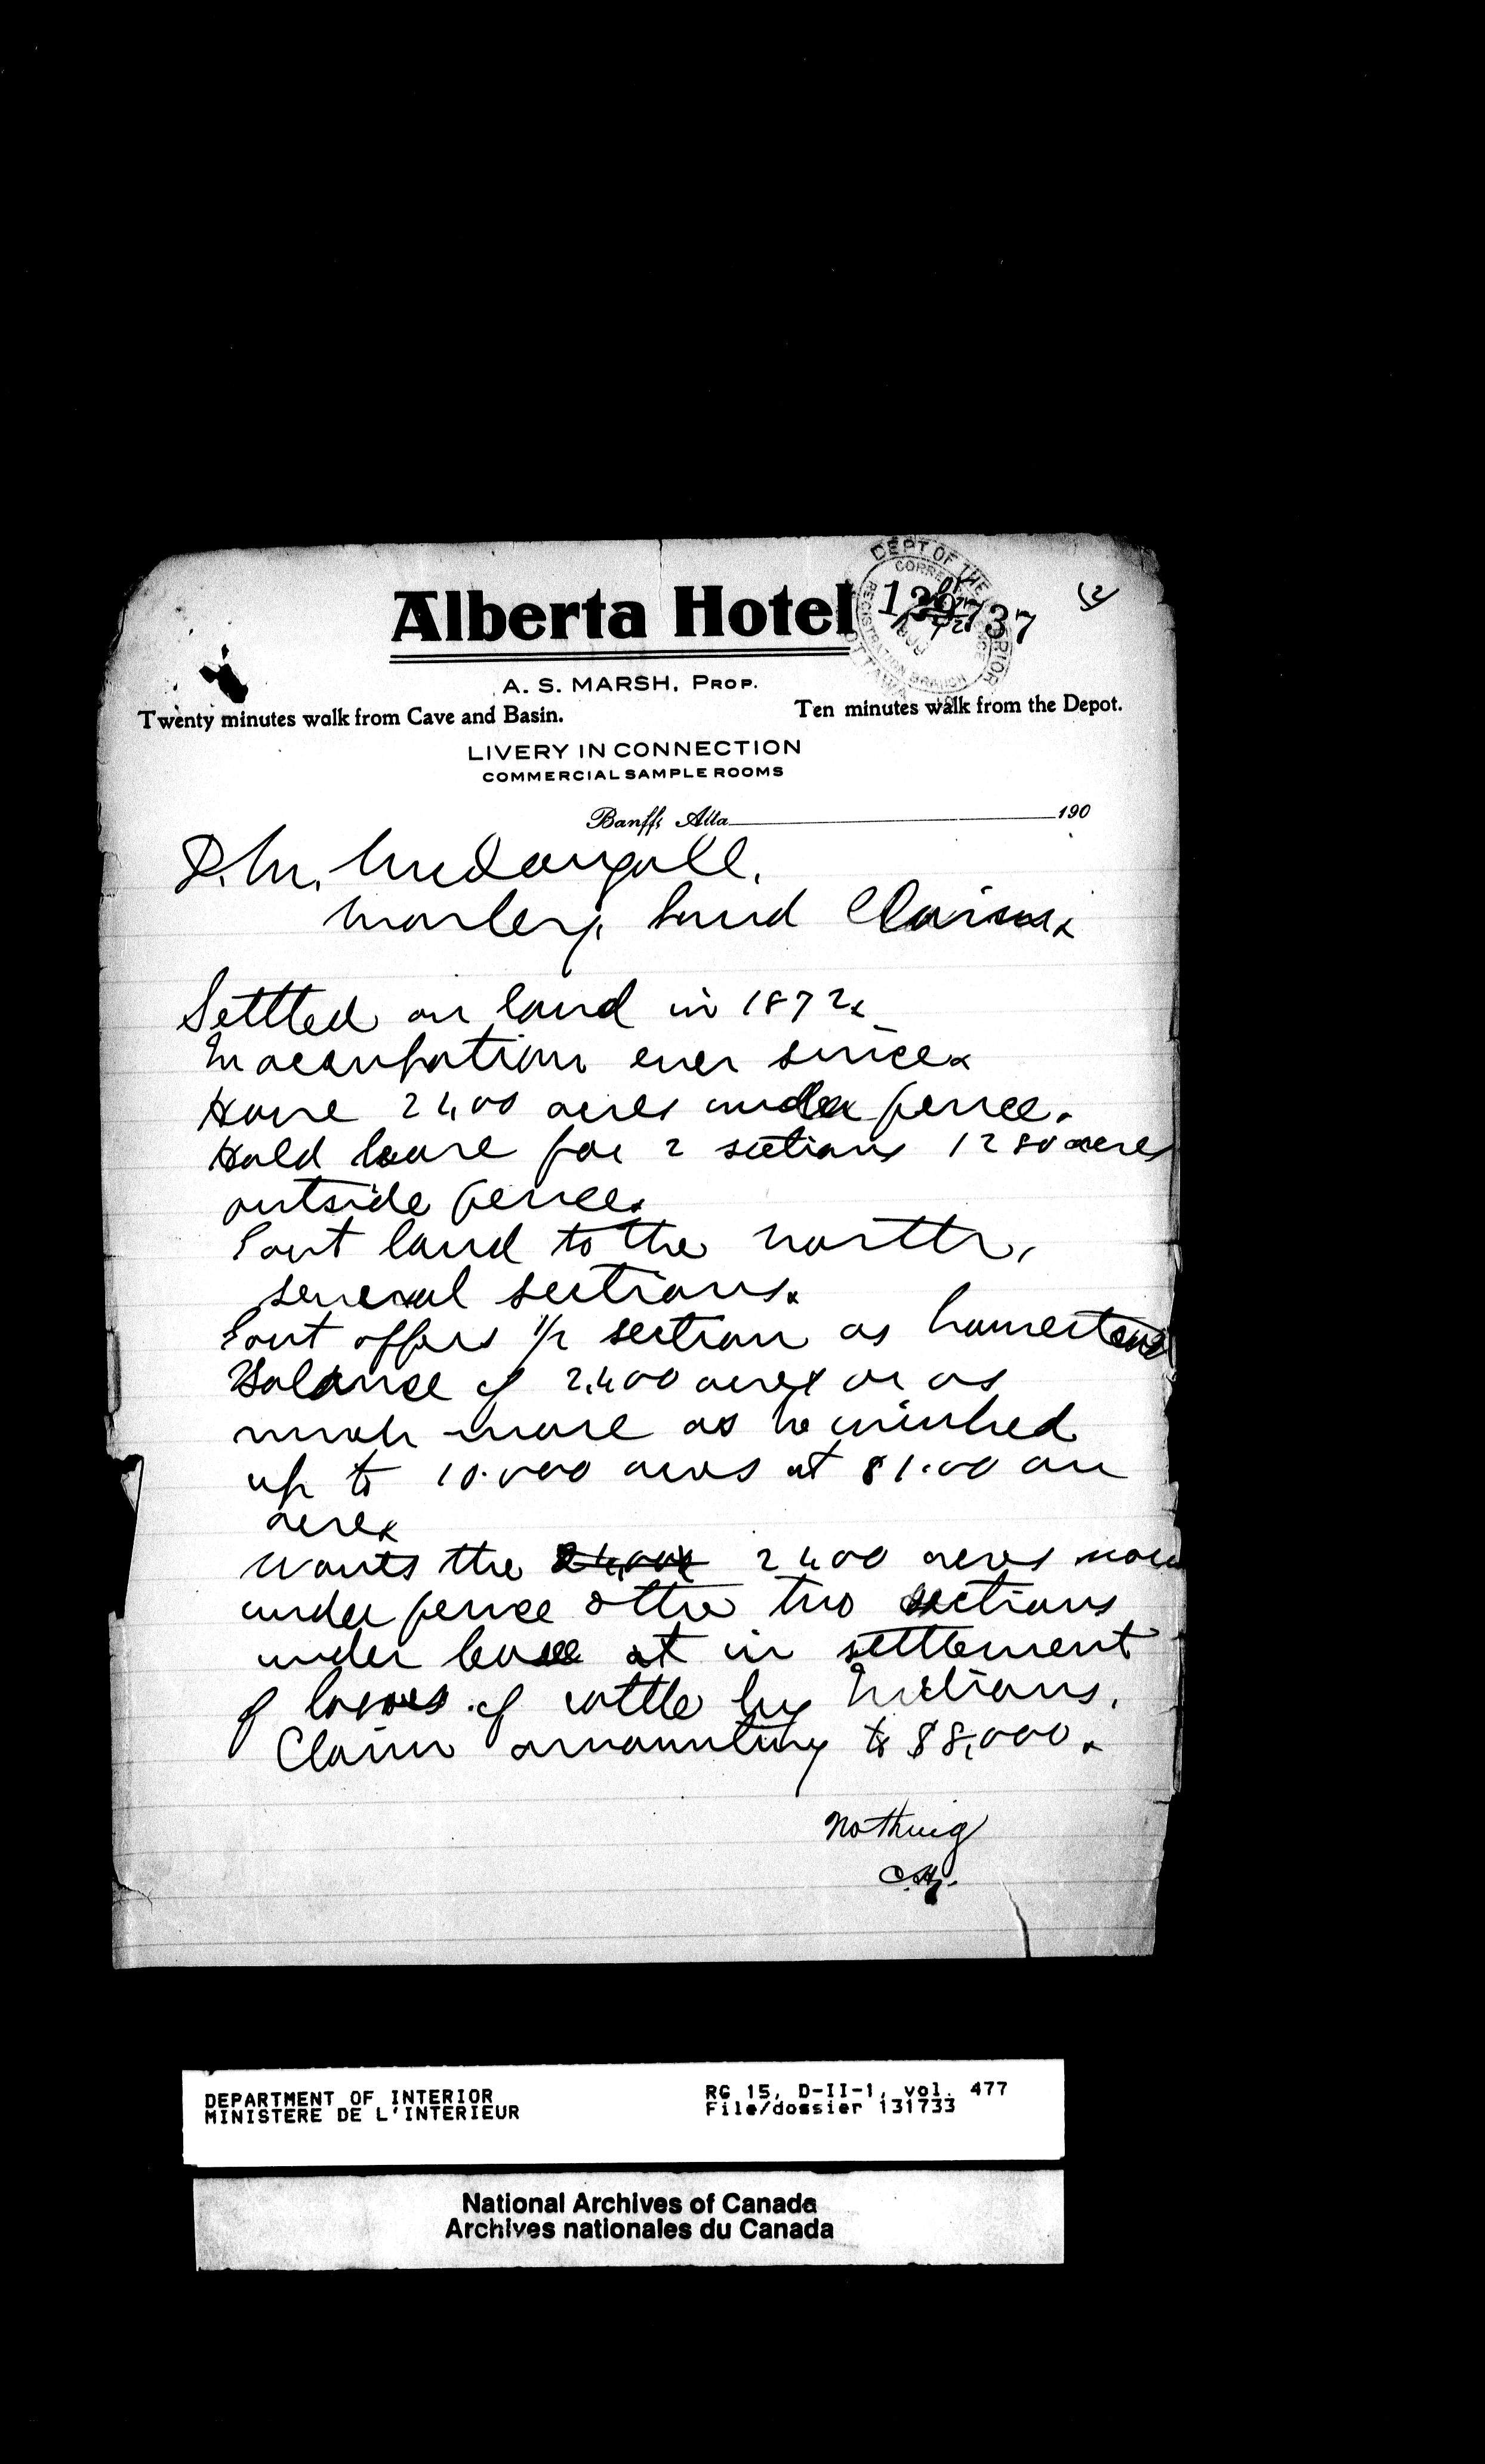 Alberta Hotel
A. S. MARSH, PROP.
Twenty minutes walk from Cave and Basin.
Ten minutes walk from the Depot.
LIVERY IN CONNECTION
COMMERCIAL SAMPLE ROOMS
Banff, Alta 190
DEPT OF THE INTERIOR
REGISTRATION BRANCH
OTTAWA
D. M. McDougall,
Morley, Land Claim.
Settled on land in 1872.
In occupation ever since.
Have 2400 acres under fence.
Hold lease for 2 sections 1280 acres
outside fence.
Govt land to the north,
several sections.
Govt offers 1/2 section as homestead
Balance of 2,400 acres or as
much more as he wished
up to 10.000 acres at $1.00 an
acre.
Wants the 2400 acres now
under fence & the two sections
under lease at in settlement
of losses of cattle by Indians.
Claim amounting to $8,000.
Nothing
DEPARTMENT OF INTERIOR
MINISTERE DE L'INTERIEUR
RG 15, D-II-1, vol. 477
File/dossier 131733
National Archives of Canada
Archives nationales du Canada